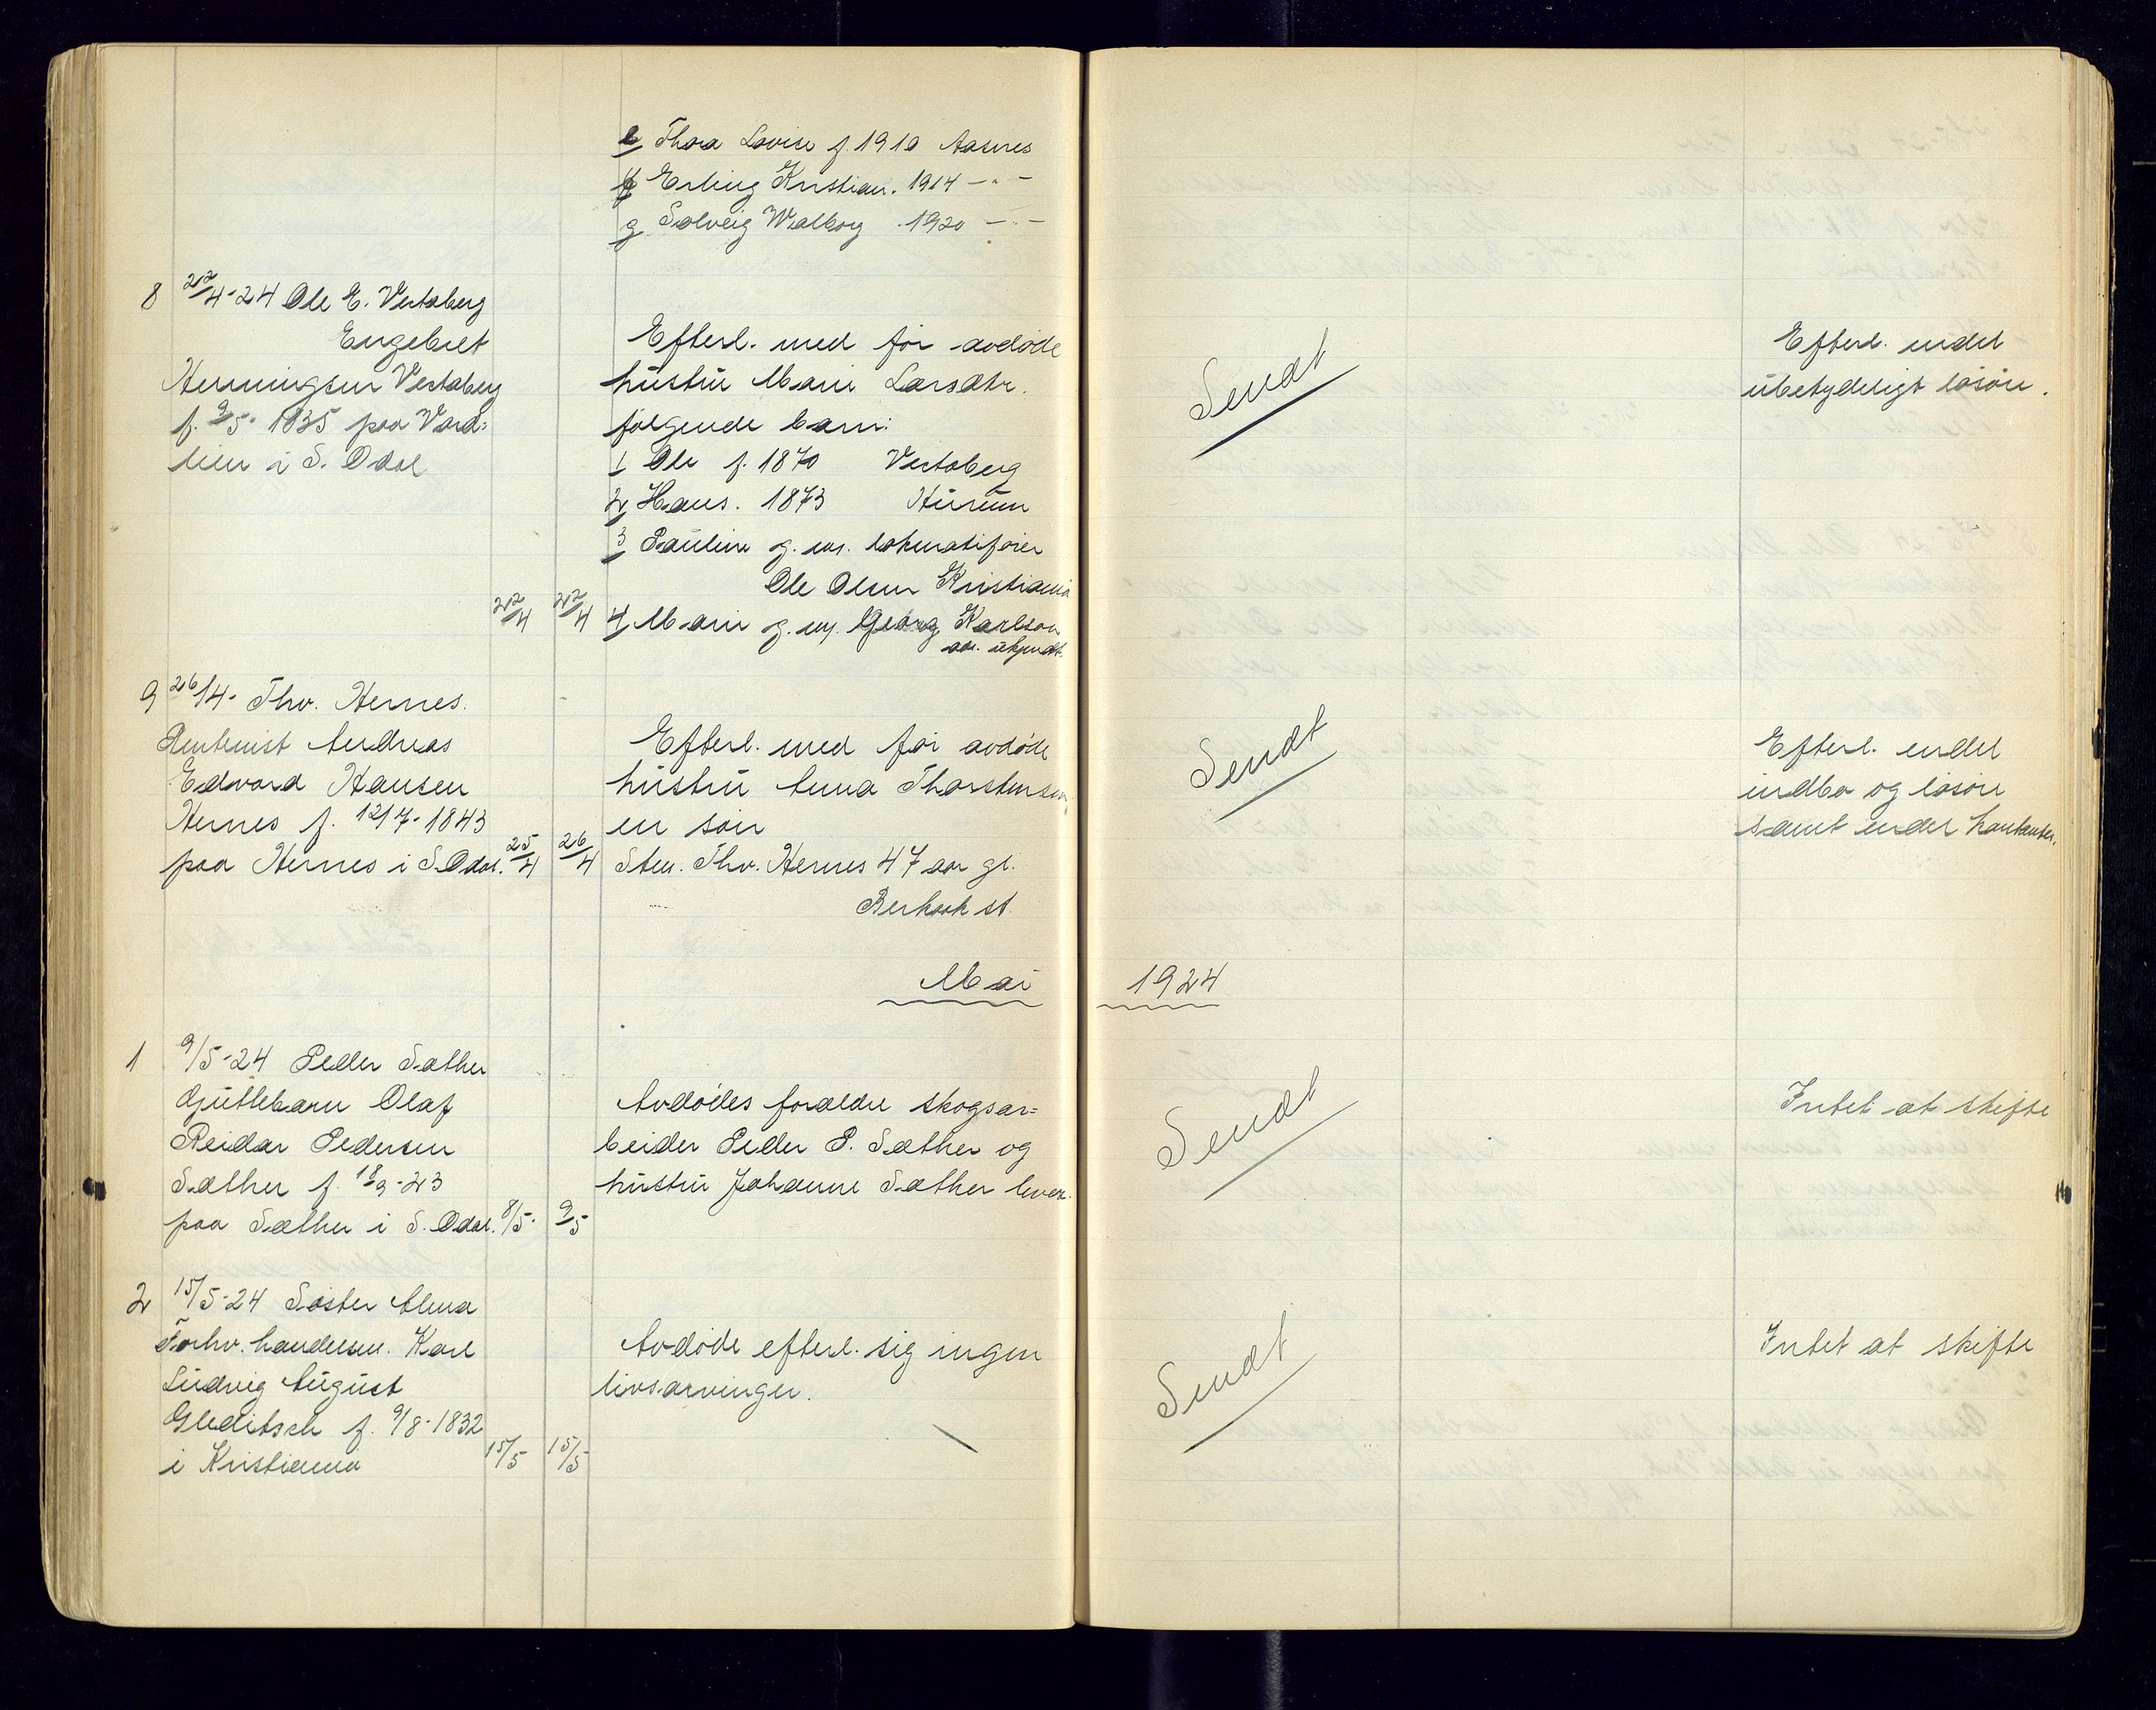 e Thora Lovise f. 1910 Aasnes
f Erling Kristian. 1914 — " —
g Solveig Walborg . 1920 — " —
8 22/4-24 Ole E. Vestaberg
Engebret
Henningsen Vestaberg
f. 9/5-1835 paa Vard=
lien i S. Odal
Efterl. med før avdøde
hustru Mari Larsdtr.
følgende barn:
1 Ole f. 1870 Vestaberg
2 Hans. 1873 Hurum
3 Pauline g. m. lokmotifører
Ole Olsen Kristiania
22/4 22/4 4 Marie g. m. Georg Karlson
adr. ukjendt.
Sendt
Efterl. endel
ubetydeligt løsøre.
9 26/4- Thv. Hernes.
Rentenist Andreas
Edvard Hansen
Hernes f. 12/7-1843
paa Hernes i S. Odal. 25/4 26/4
Efterl. med før avdøde
hustru Anna Thorstensen
en søn
Stm. Thv. Hernes 47 aar gl.
Berkaak st.
Sendt
Efterl. endel
indbo og løsøre
samt endel kontanter.
Mai 1924
1 9/5-24 Peder Sæther
Gutlebarn Olaf
Reidar Pedersen
Sæther f. 18/9-23
paa Sæther i S. Odal. 8/5- 9/5
Avdødes forældre skogsar=
beider Peder P. Sæther og
hustru Johanne Sæther lever.
Sendt
Intet at skifte
2 15/5-24 Søster Alma
Forhv. handelsm. Karl
Ludvig August
Gleditsch f. 9/8-1832
i Kristiania 15/5 15/5
Avdøde efterl. sig ingen
livsarvinger.
Sendt
Intet at skifte